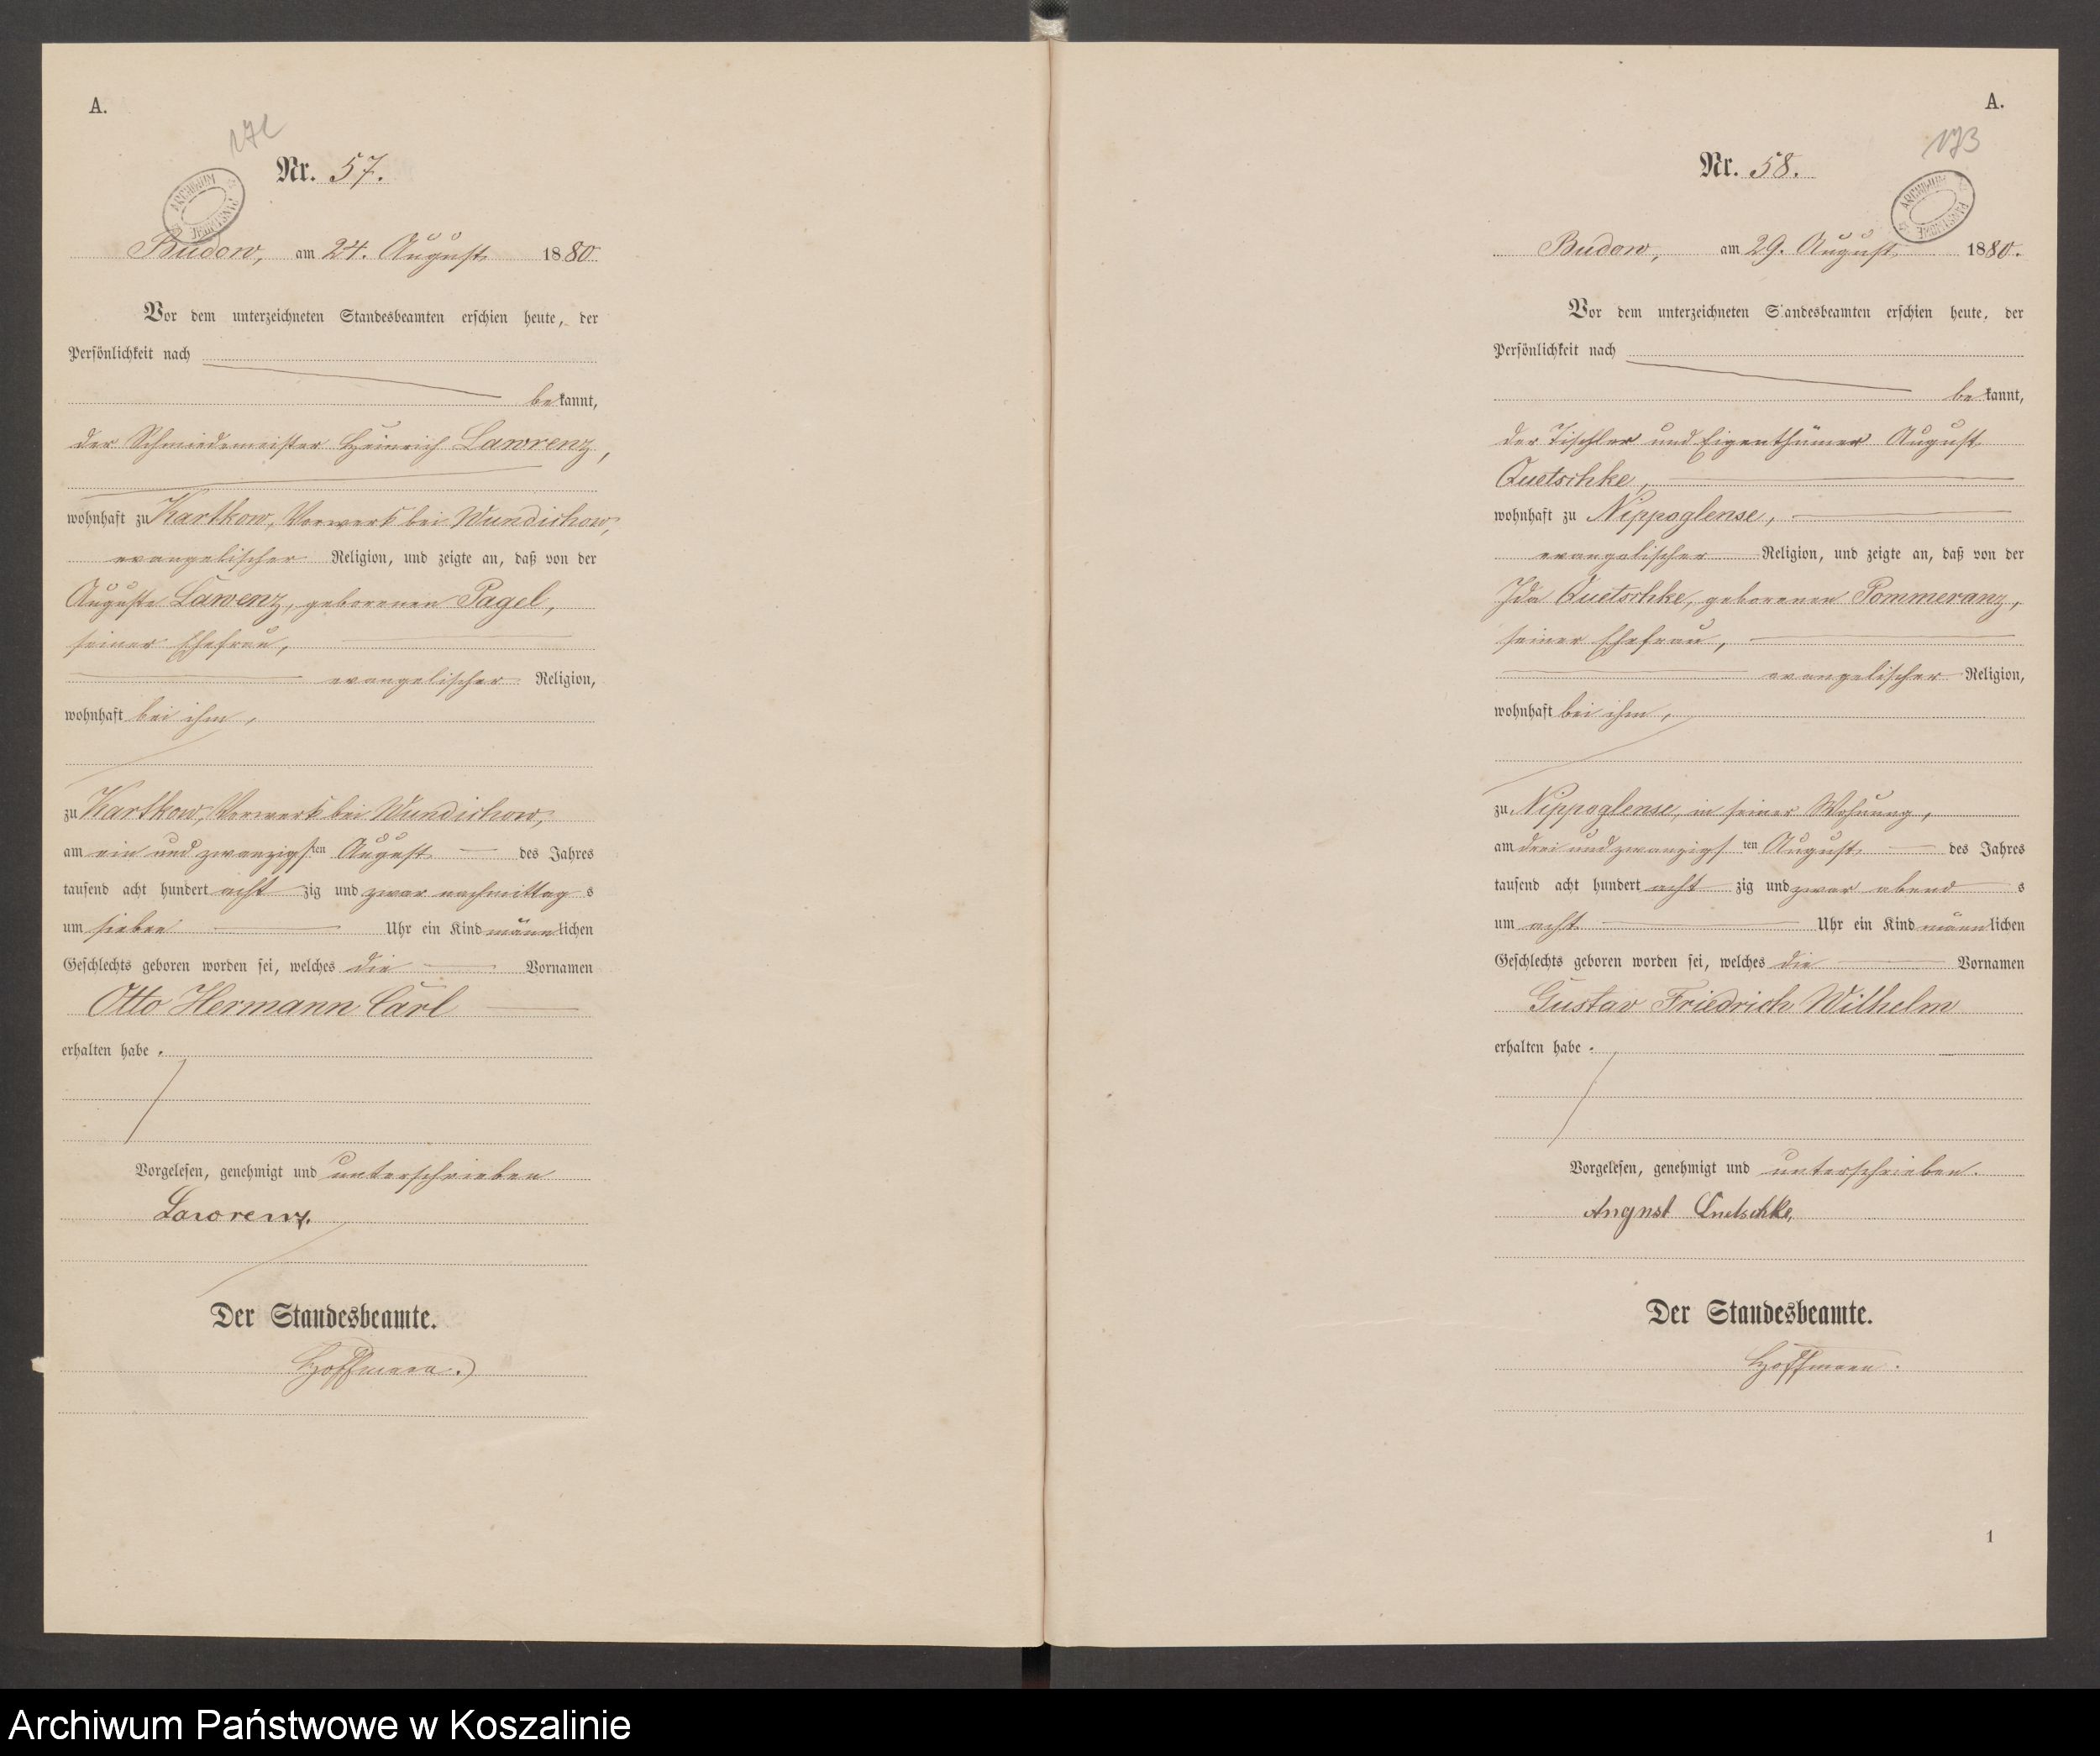 A.
172
Nr. 57.
ARCHIWUM PAŃSTWOWE
Budow, am 24. August 1880
Vor dem unterzeichneten Standesbeamten erschien heute, der
Persönlichkeit nach
bekannt,
der Schmiedemeister Heinrich Lawrenz,
wohnhaft zu Kartkow, Vorwerk bei Wundichow,
evangelischer Religion, und zeigte an, daß von der
Auguste Lawenz, geborenen Pagel,
seiner Ehefrau,
evangelischer Religion,
wohnhaft bei ihm,
zu Kartkow, Vorwerk bei Wundichow,
am ein und zwanzigsten August des Jahres
tausend acht hundert achtzig und zwar nachmittags
um sieben Uhr ein Kind männlichen
Geschlechts geboren worden sei, welches die Vornamen
Otto Hermann Carl
erhalten habe.
Vorgelesen, genehmigt und unterschrieben
Lawrenz.
Der Standesbeamte.
Hoffmann.
A.
173
Nr. 58.
ARCHIWUM PAŃSTWOWE
Budow, am 29. August 1880.
Vor dem unterzeichneten Standesbeamten erschien heute, der
Persönlichkeit nach
bekannt,
der Tischler und Eigenthümer August
Quetschke,
wohnhaft zu Nippoglense,
evangelischer Religion, und zeigte an, daß von der
Ida Quetschke, geborenen Pommeranz,
seiner Ehefrau,
evangelischer Religion,
wohnhaft bei ihm,
zu Nippoglense, in seiner Wohnung,
am drei und zwanzigsten August des Jahres
tausend acht hundert achtzig und zwar abends
um acht Uhr ein Kind männlichen
Geschlechts geboren worden sei, welches die Vornamen
Gustav Friedrich Wilhelm
erhalten habe.
Vorgelesen, genehmigt und unterschrieben.
August Quetschke,
Der Standesbeamte.
Hoffmann.
1
Archiwum Państwowe w Koszalinie